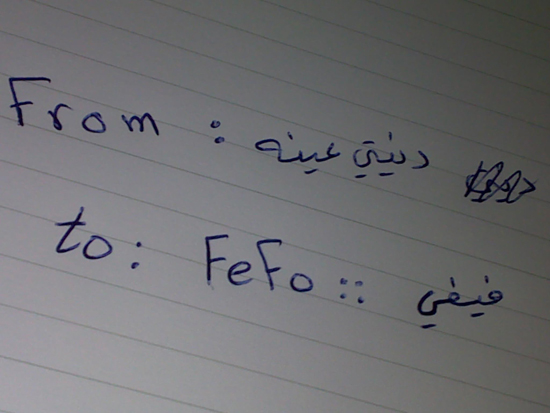 From : دنيتي عينه
to : FeFo :: فيفي